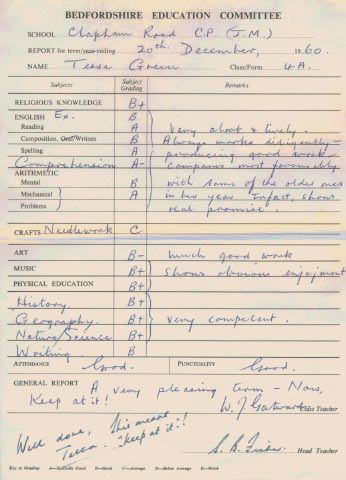 BEDFORDSHIRE EDUCATION COMMITTEE
SCHOOL Clapham Road C.P. (J.M.)
REPORT for term/year ending 20th. December, 1960.
NAME Tessa Green Class/Form 4A.
Subjects Subject Grading Remarks
RELIGIOUS KNOWLEDGE B+
ENGLISH Ex. B
Reading A Very alert & lively.
Composition, Oral/Written B Always works diligently –
Spelling A producing good work –
Comprehension A- compares most favourably
ARITHMETIC
Mental B with some of the older ones
Mechanical } A in her year. Infact, shows
Problems real promise.
CRAFTS Needlework C
ART B- Much good work
MUSIC B+ Shows obvious enjoyment
PHYSICAL EDUCATION B+
History. B+
Geography. B+ Very competent.
Nature/Science B+
Writing. B
ATTENDANCE Good. PUNCTUALITY Good.
GENERAL REPORT A very pleasing term – Now,
Keep at it! W. J. Class Teacher
Well done, Tessa. This means "keep at it"!
Head Teacher
Key to Grading: A—Specially Good B—Good C—Average D—Below Average E—Weak